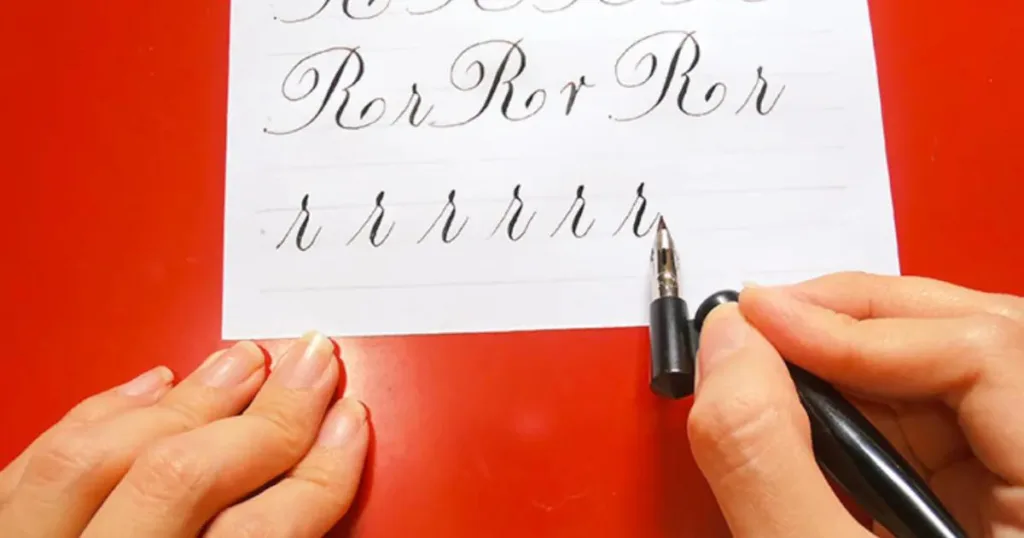 Rr Rr Rr
r r r r r r